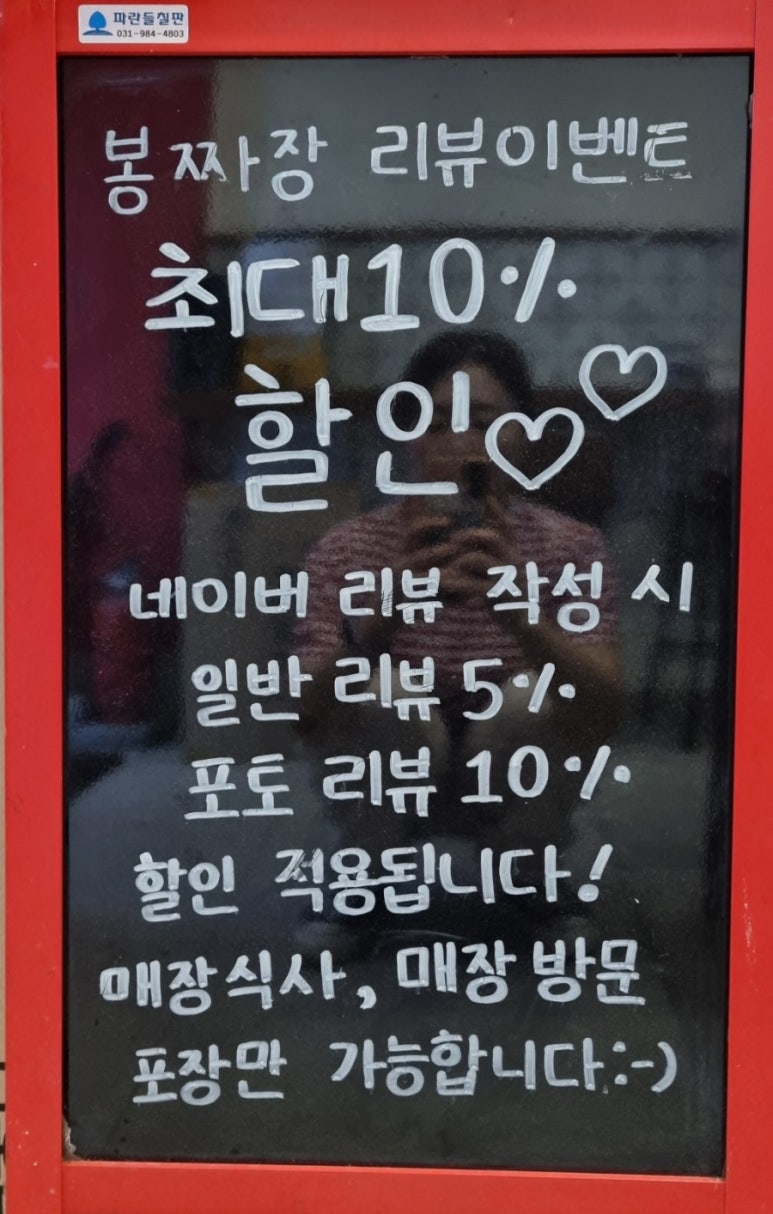 파란들칠판
031-984-4803
봉짜장 리뷰이벤트
최대10%
할인♡♡
네이버 리뷰 작성 시
일반 리뷰 5%
포토 리뷰 10%
할인 적용됩니다!
매장식사, 매장 방문
포장만 가능합니다:-)